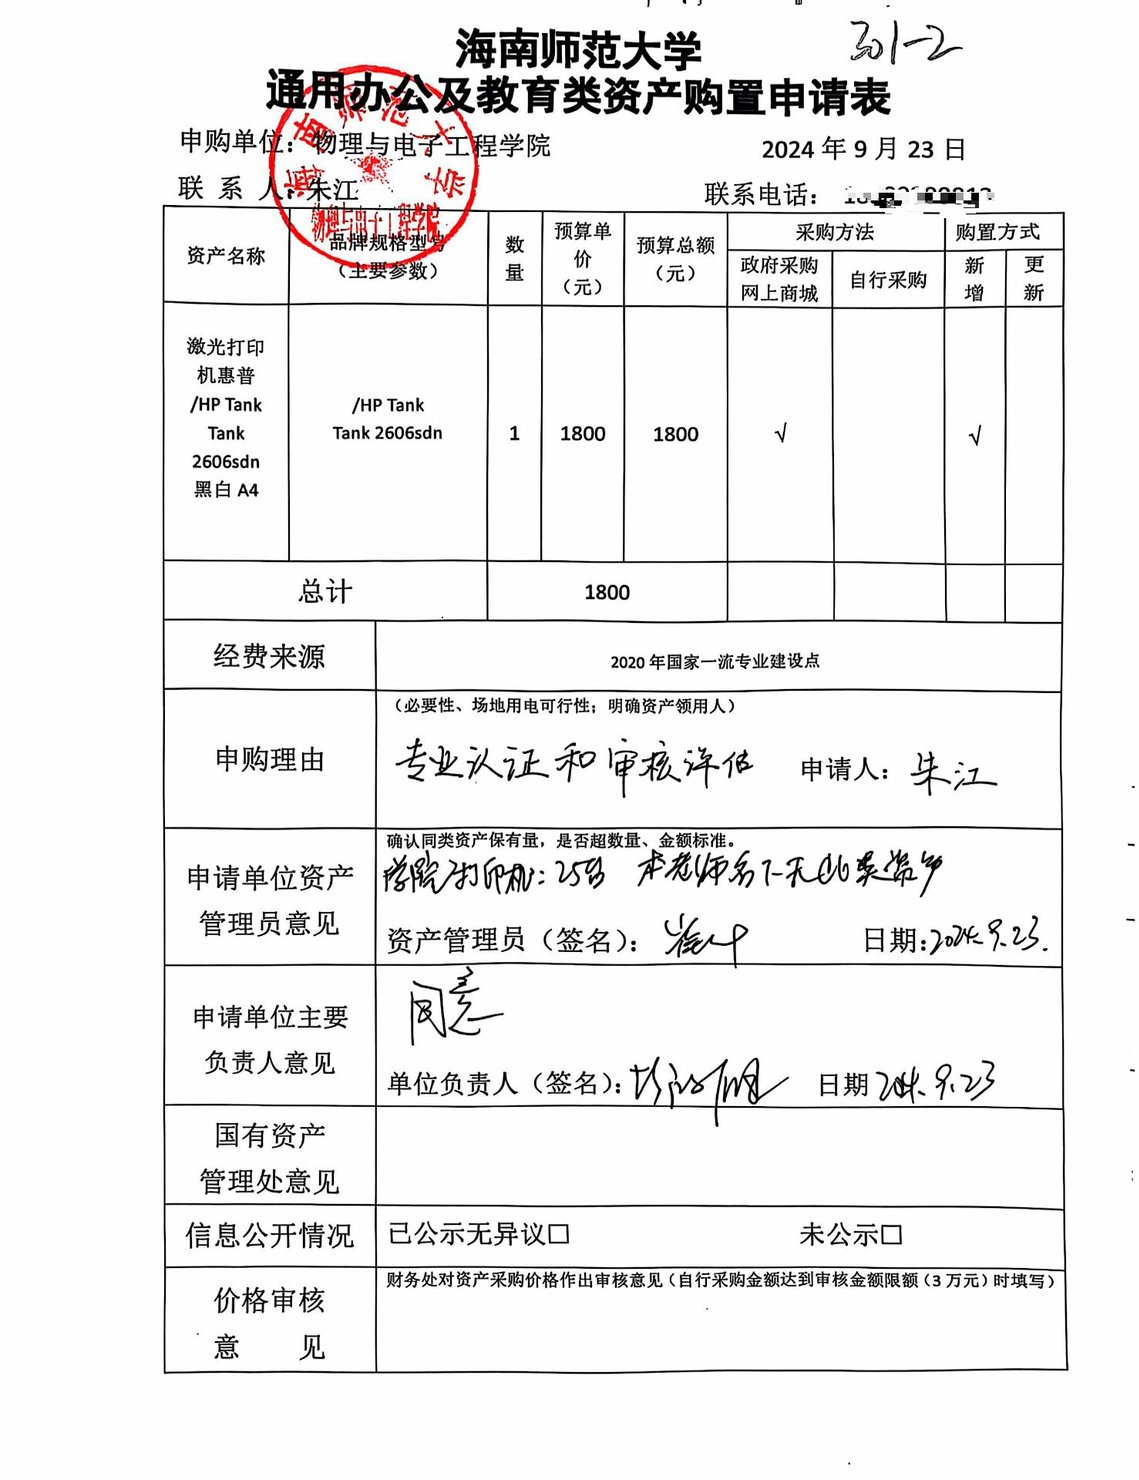 301-2
海南师范大学
通用办公及教育类资产购置申请表
申购单位：物理与电子工程学院
2024 年 9 月 23 日
联 系 人：朱江
联系电话：
海南师范大学
物理与电子工程学院
资产名称
品牌规格型号
（主要参数）
数
量
预算单
价
（元）
预算总额
（元）
采购方法
购置方式
政府采购
网上商城
自行采购
新
增
更
新
激光打印
机惠普
/HP Tank
Tank
2606sdn
黑白 A4
/HP Tank
Tank 2606sdn
1
1800
1800
√
√
总计
1800
经费来源
2020 年国家一流专业建设点
申购理由
（必要性、场地用电可行性；明确资产领用人）
专业认证和审核评估 申请人：朱江
申请单位资产
管理员意见
确认同类资产保有量，是否超数量、金额标准。
学院打印机：25台 朱老师名下无此类资产
资产管理员（签名）： 日期:2024.9.23.
申请单位主要
负责人意见
同意
单位负责人（签名）： 日期 2024.9.23
国有资产
管理处意见
信息公开情况
已公示无异议□ 未公示□
价格审核
意 见
财务处对资产采购价格作出审核意见（自行采购金额达到审核金额限额（3 万元）时填写）